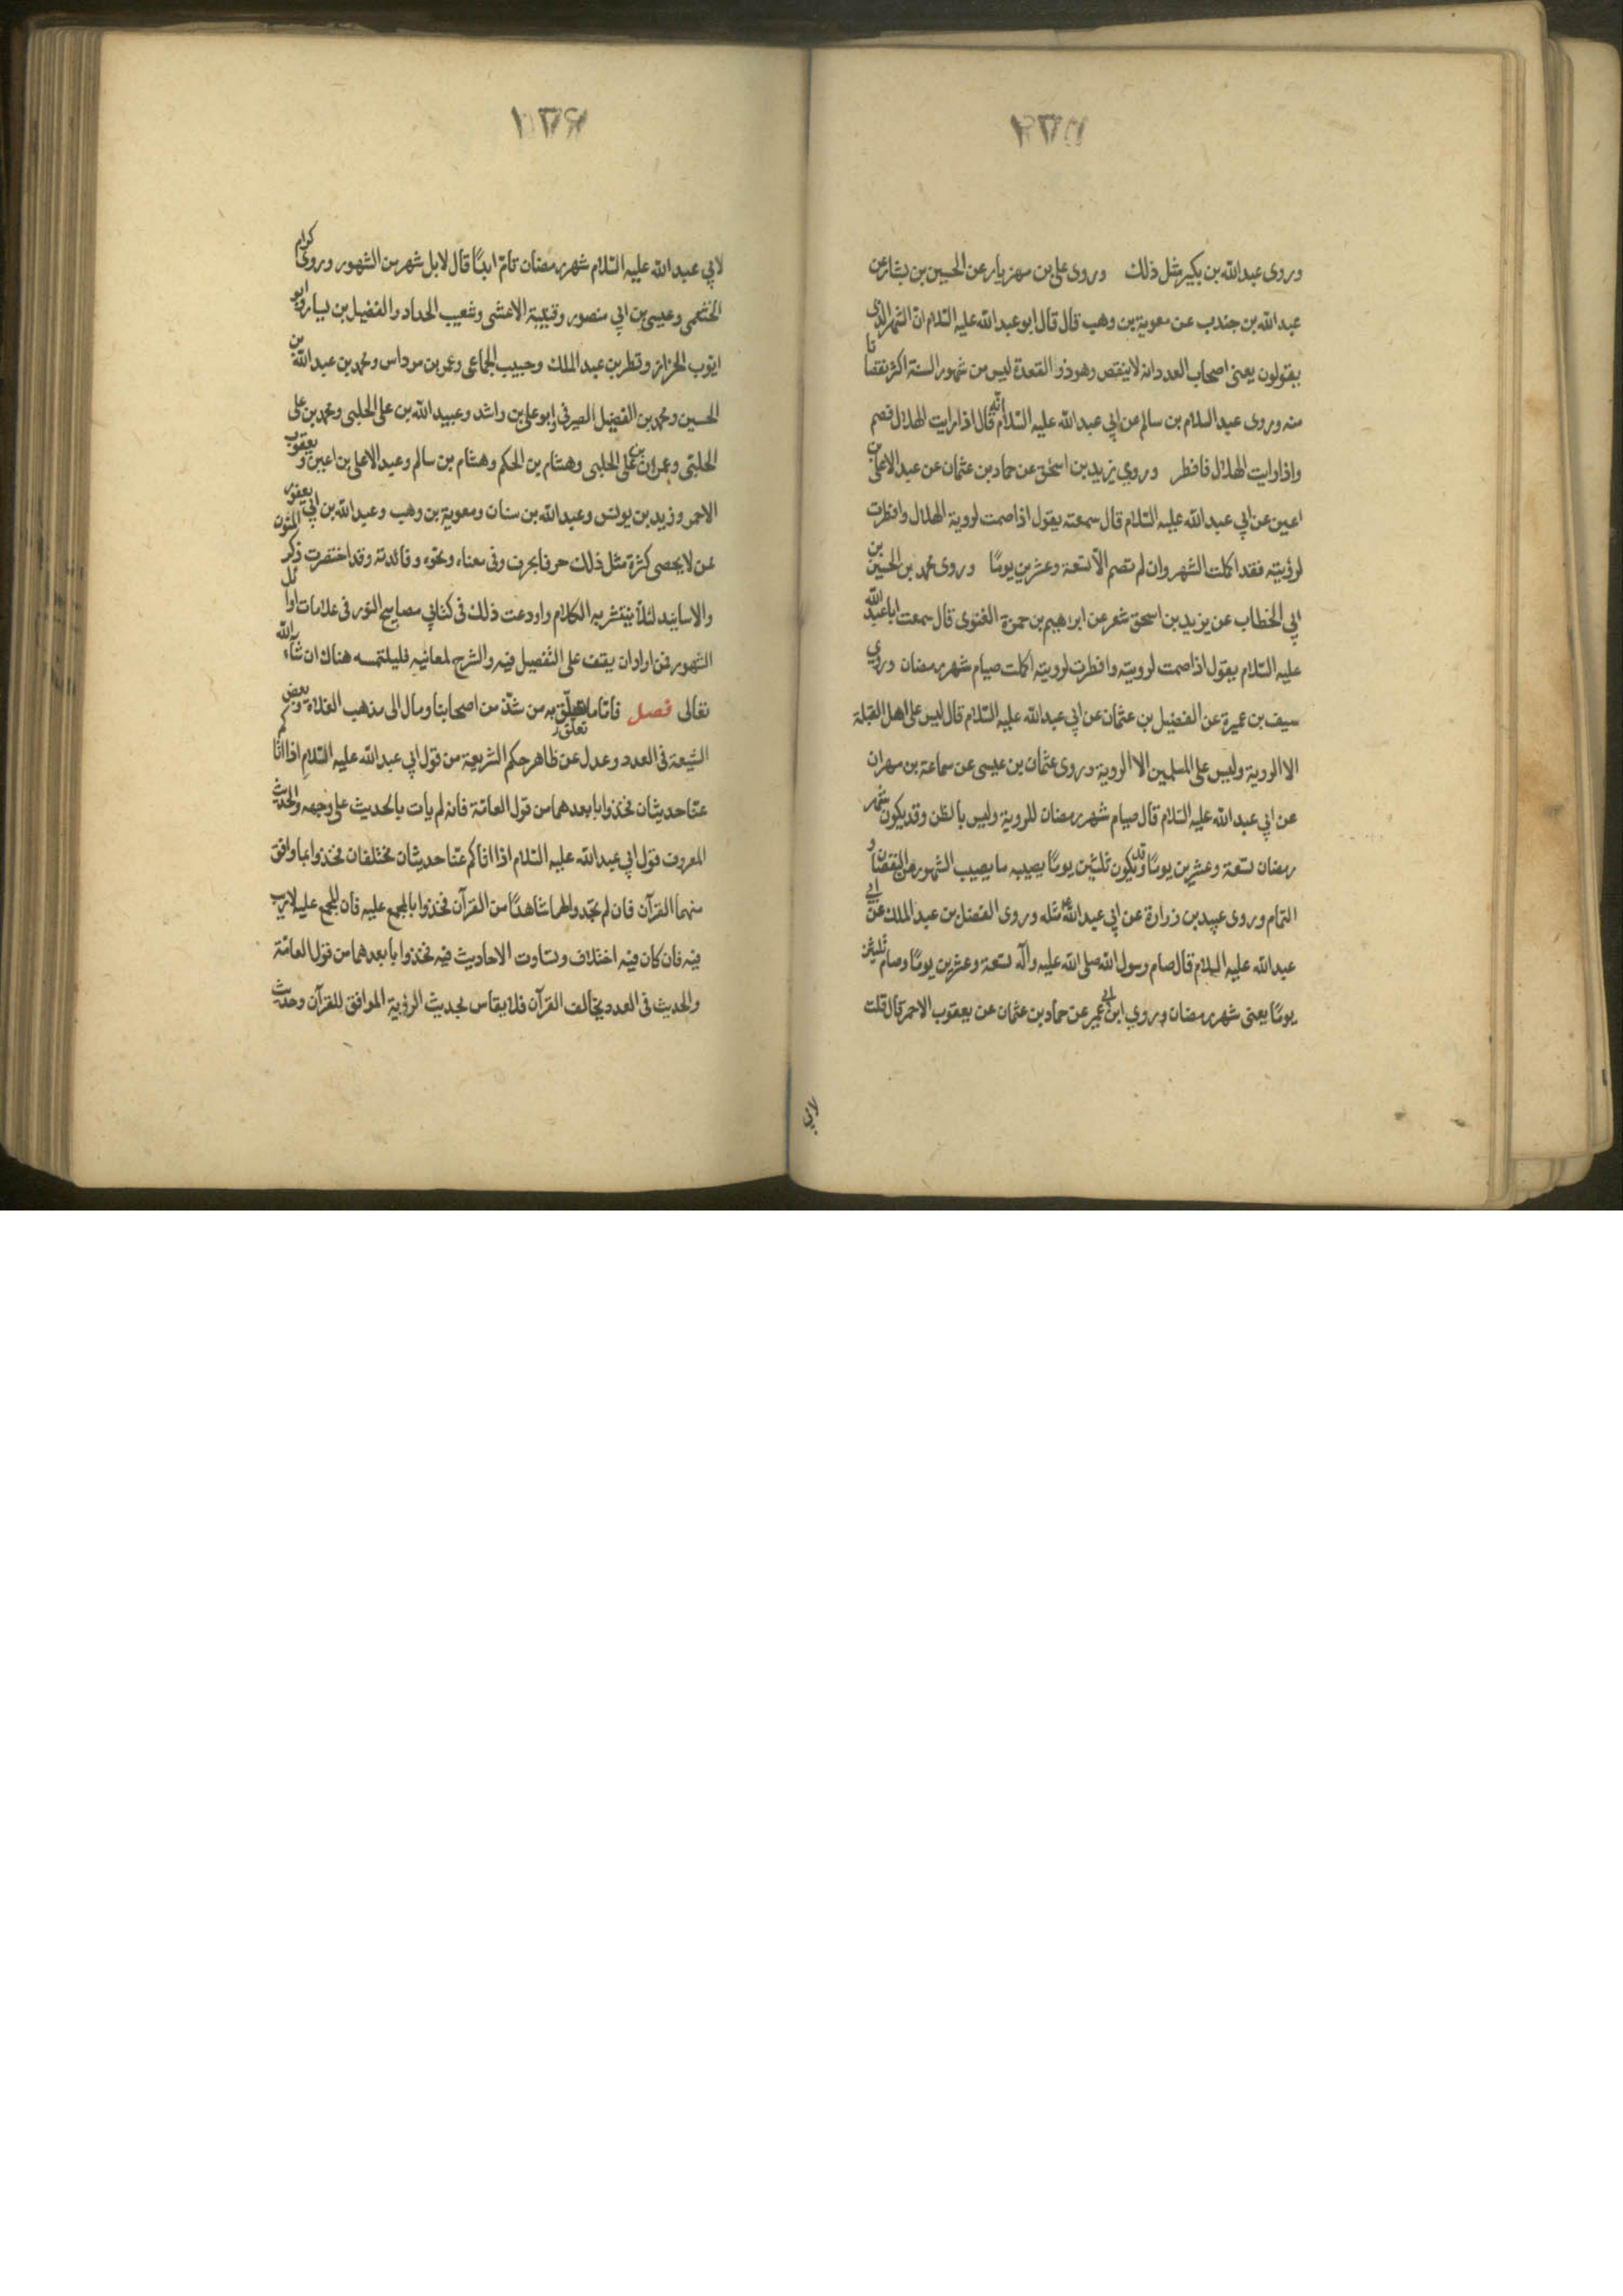 وروى عبدالله بن بكير مثل ذلك وروى على بن مهزيار عن الحسين بن بشار عن
عبدالله بن جندب عن معوية بن وهب قال قال ابو عبدالله عليه السلام ان الشهر الذى
يقولون يعنى اصحاب العدد انه لا ينقص وهو ذو القعدة ليس من شهور السنة اكثر نقصانا
منه وروى عبد السلام بن سالم عن ابي عبدالله عليه السلام انه قال اذا رايت الهلال فصم
واذا رايت الهلال فافطر وروي يزيد بن اسحق عن حماد بن عثمان عن عبد الاعلى بن
اعين عن ابي عبدالله عليه السلام قال سمعته يقول اذا صمت لروية الهلال وافطرت
لرؤيته فقد اكملت الشهر وان لم تصم الا تسعة وعشرين يومًا وروى محمد بن الحسين بن
ابي الخطاب عن يزيد بن اسحق شعر عن ابرهيم بن حمزة الغنوى قال سمعت ابا عبد الله
عليه السلام يقول اذا صمت لرويته وافطرت لرويته اكملت صيام شهر رمضان وروي
سيف بن عميرة عن الفضيل بن عثمان عن ابي عبدالله عليه السلام قال ليس على اهل القبلة
الا الروية وليس على المسلمين الا الروية وروى عثمان بن عيسى عن سماعة بن مهران
عن ابي عبدالله عليه السلام قال صيام شهر رمضان للروية وليس بالظن وقد يكون شهر
رمضان تسعة وعشرين يومًا وقد يكون ثلثين يومًا يصيبه ما يصيب الشهور من النقصان و
التمام وروى عبيد بن زرارة عن ابي عبدالله ع مثله وروى الفضل بن عبد الملك عن ابي
عبدالله عليه السلام قال صام رسول الله صلى الله عليه وآله تسعة وعشرين يومًا وصام ثلثين
يومًا يعنى شهر رمضان وروي ابن ابي عمير عن حماد بن عثمان عن يعقوب الاحمر قال قلت
لابي
لابي عبدالله عليه السلام شهر رمضان تام ابدًا قال لا بل شهر من الشهور وروى كرام
الخثعمى وعيسى بن ابي منصور وقتيبة الاعشى وشعيب الحداد والفضيل بن يسار وابو
ايوب الخزاز وقطر بن عبد الملك وحبيب الجماعى وعمر بن مرداس ومحمد بن عبدالله بن
الحسين ومحمد بن الفضيل الصيرفى وابو على بن راشد وعبيد الله بن على الحلبى ومحمد بن على
الحلبى وعمران بن على الحلبى وهشام بن الحكم وهشام بن سالم وعبد الاعلى بن اعين ويعقوب
الاحمر وزيد بن يونس وعبدالله بن سنان ومعوية بن وهب وعبدالله بن ابي يعفور
ممن لا يحصى كثرة مثل ذلك حرفا بحرف وفى معناه ونحوه وفائدته وقد اختصرت ذكر المتون
والاسانيد لئلا ينتشر به الكلام واودعت ذلك فى كتابي مصابيح النور فى علامات اوائل
الشهور فمن اراد ان يقف على التفصيل فيه والشرح لمعانيه فليلتمسه هناك ان شاء الله
تعالى فصل فاما ما تعلق به من شذ من اصحابنا ومال الى مذهب الغلاة وبعض
تعلق
الشيعة فى العدد وعدل عن ظاهر حكم الشريعة من قول ابي عبدالله عليه السلام اذا اتاكم
عنا حديثان فخذوا بابعدهما من قول العامة فانه لم يات بالحديث على وجهه والحديث
المعروف قول ابي عبدالله عليه السلام اذا اتاكم عنا حديثان مختلفان فخذوا بما وافق
منهما القرآن فان لم تجدوا لهما شاهدًا من القرآن فخذوا بالمجمع عليه فان المجمع عليه لا ريب
فيه فان كان فيه اختلاف وتساوت الاحاديث فيه فخذوا بابعدهما من قول العامة
والحديث فى العدد يخالف القرآن فلا يقاس بحديث الرؤية الموافق للقرآن وحديث